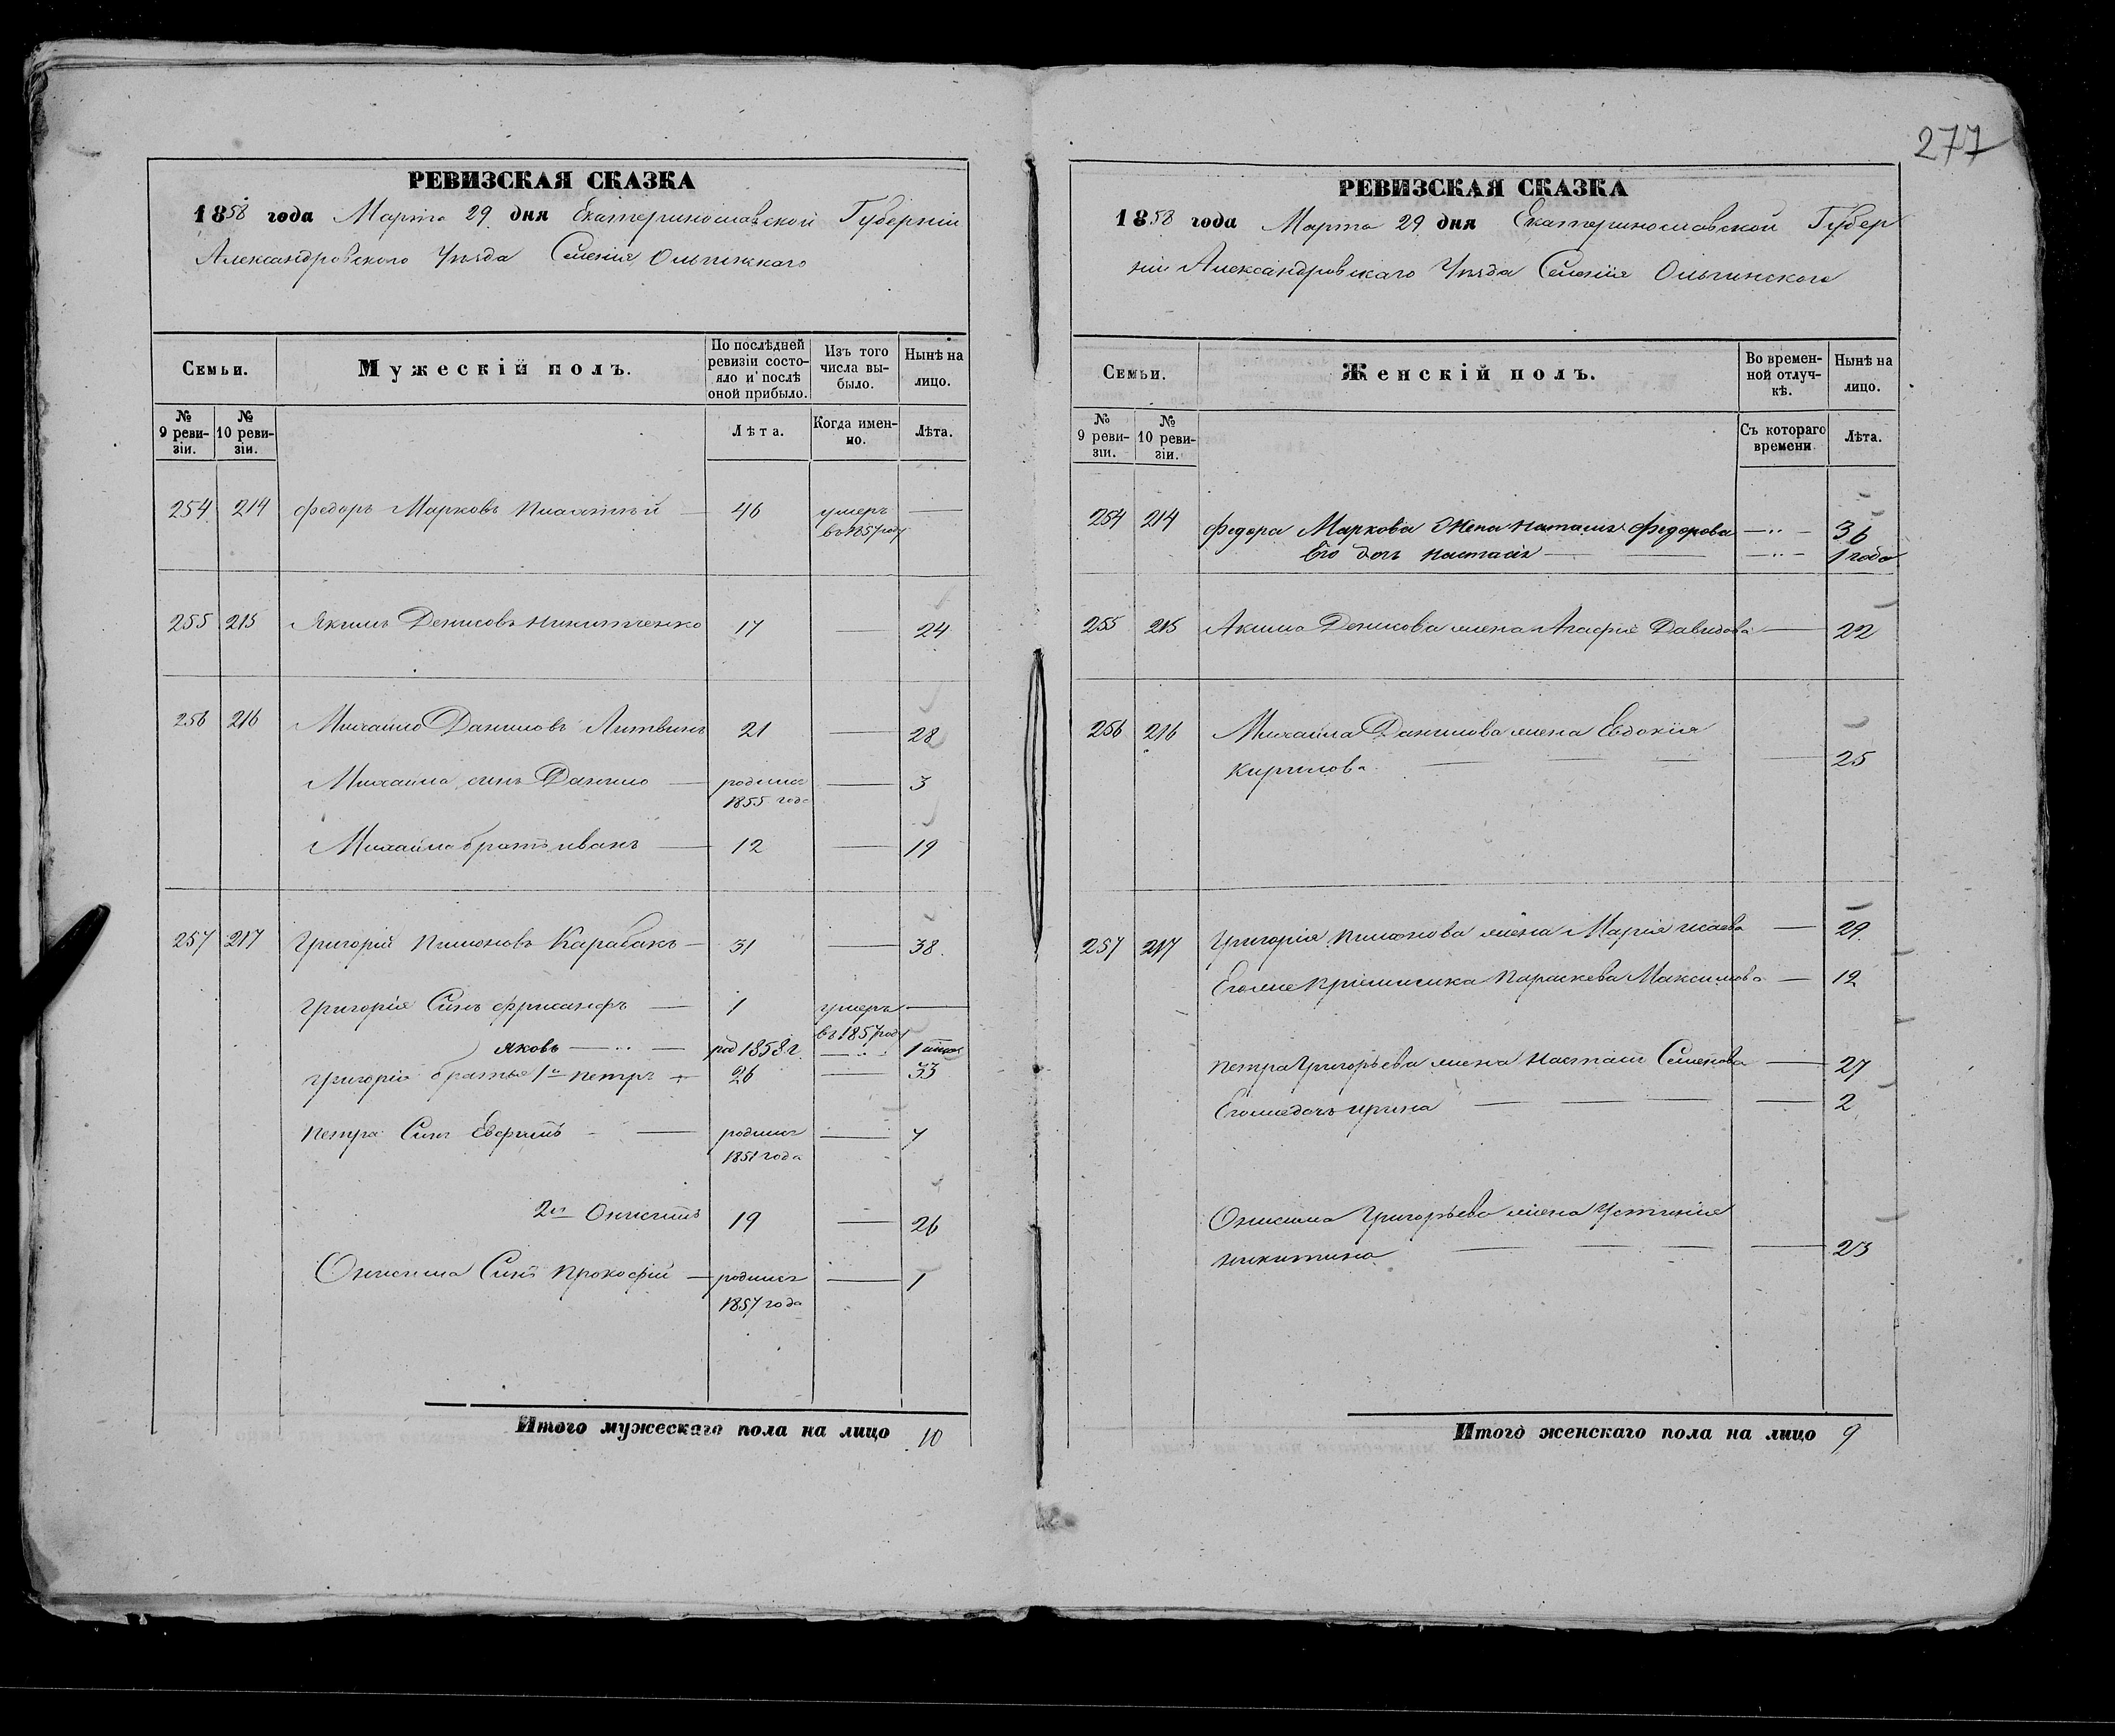 277
РЕВИЗСКАЯ СКАЗКА
1858 года Марта 29 дня Екатеринославской Губерніи
Александровского Уѣзда Селенія Ольгинскаго
Семьи.
Мужескій полъ.
По послѣдней ревизіи состояло и послѣ оной прибыло.
Изъ того числа выбыло.
Нынѣ на лицо.
№ 9 ревизіи.
№ 10 ревизіи.
Лѣта.
Когда именно.
Лѣта.
254 214 Федоръ Марковъ — 46 умеръ —
въ 1857 году
255 215 Якимъ Денисовъ Никитченко 17 — 24
256 216 Михайло Даниловъ Литвинъ 21 — 28
Михайла сынъ Данило — родился — 3
1855 года
Михайла братъ иванъ — 12 — 19
257 217 Григорій Карабакъ — 31 — 38.
Григорія Сынъ — 1 умеръ —
въ 1857 году
яковъ — род 1858 г. — 1
Григорія братья 1й петръ — 26 — 33
петра Сынъ — родился — 7
1851 года
2й 19 — 26
Онисима Сынъ прокофій — родился — 1
1857 года
Итого мужескаго пола на лицо 10
РЕВИЗСКАЯ СКАЗКА
1858 года Марта 29 дня Екатеринославской Губер
ніи Александровскаго Уѣзда Селенія Ольгинского
Семьи.
Женскій полъ.
Во временной отлучкѣ.
Нынѣ на лицо.
№ 9 ревизіи.
№ 10 ревизіи.
Съ котораго времени.
Лѣта.
254 214 Федора Маркова Жена Федорова — 36
Его дочь настасія — 1 года
255 215 Акима Денисова жена Агафія Давидова — 22
256 216 Михайла Данилова жена Евдокія
Кирилова — 25
257 217 Григорія жена Марія исаева — 29.
Егоже Параскева Максимова — 12
петра Григорьева жена Семенова — 27
Егоже дочь ирина — 2
Онисима Григорьева жена Устинія
никитина — 23
Итого женскаго пола на лицо 9